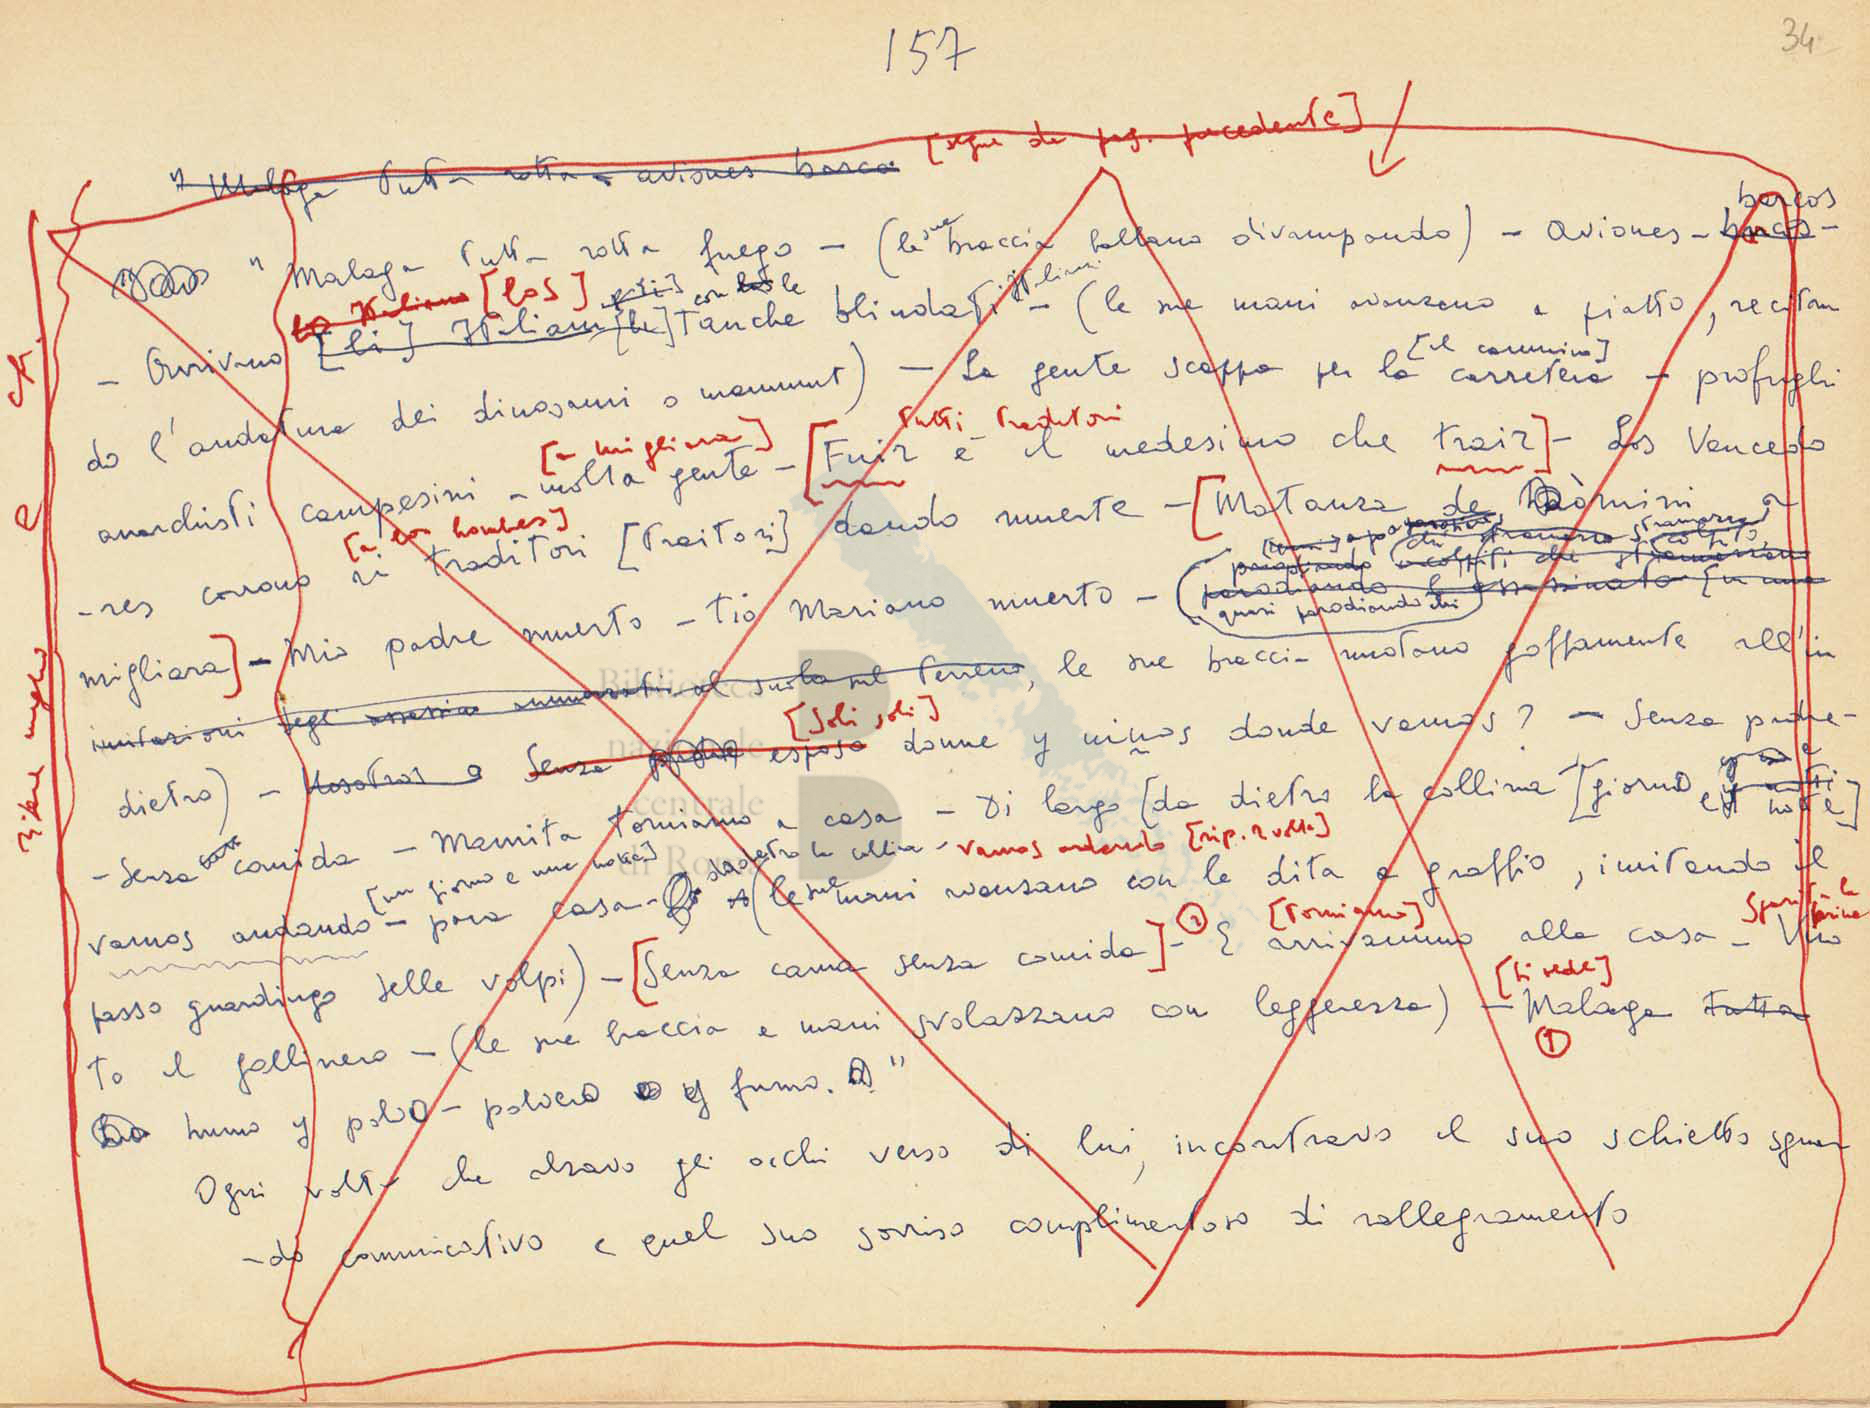 157
34
[segue da pag. precedente]
" Malaga tutta rotta aviones barca
barcos
" Malaga tutta rotta fuego — (le sue braccia ballano divampando) — Aviones — barca —
[los] con le
— Arrivano [li] Italiani [le] tanche blindati italiani — (le sue mani avanzano a piatto, recitan
[il cammino]
do l'andatura dei dinosauri o mammut) — La gente scappa per la carretera — profughi
[a migliara] tutti traditori
anarchisti campesini — molta gente — [Fuir è il medesimo che trair] — Los Vencedo
[a los hombes]
-res corrono ai traditori [traitori] dando muerte — [Matanza de òmini a
migliara] — Mio padre muerto — tio Mariano muerto — (parodiando
quasi parodiando chi
imitazioni degli sul terreno, le sue braccia nuotano goffamente all'in
[soli soli]
dietro) — Nosotros Senza esposo donne y niños donde vamos? — Senza padre —
— Senza comida — Mamita torniamo a casa — Di largo [da dietro la collina [giorno e notte]
[un giorno e una notte] da dietro la collina — vamos andando [rip. 2 volte]
vamos andando — para casa — (le sue mani avanzano con le dita a graffio, imitando il
[torniamo]
passo guardingo delle volpi) — [Senza cama senza comida] — E arrivammo alla casa — Vuo
[si vede]
to il gallinero — (le sue braccia e mani svolazzano con leggerezza) — Malaga tutta
1
humo y polvo — polvere y fumo. "
Ogni volta che alzavo gli occhi verso di lui, incontravo il suo schietto sguar
-do comunicativo e quel suo sorriso complimentoso di rallegramento